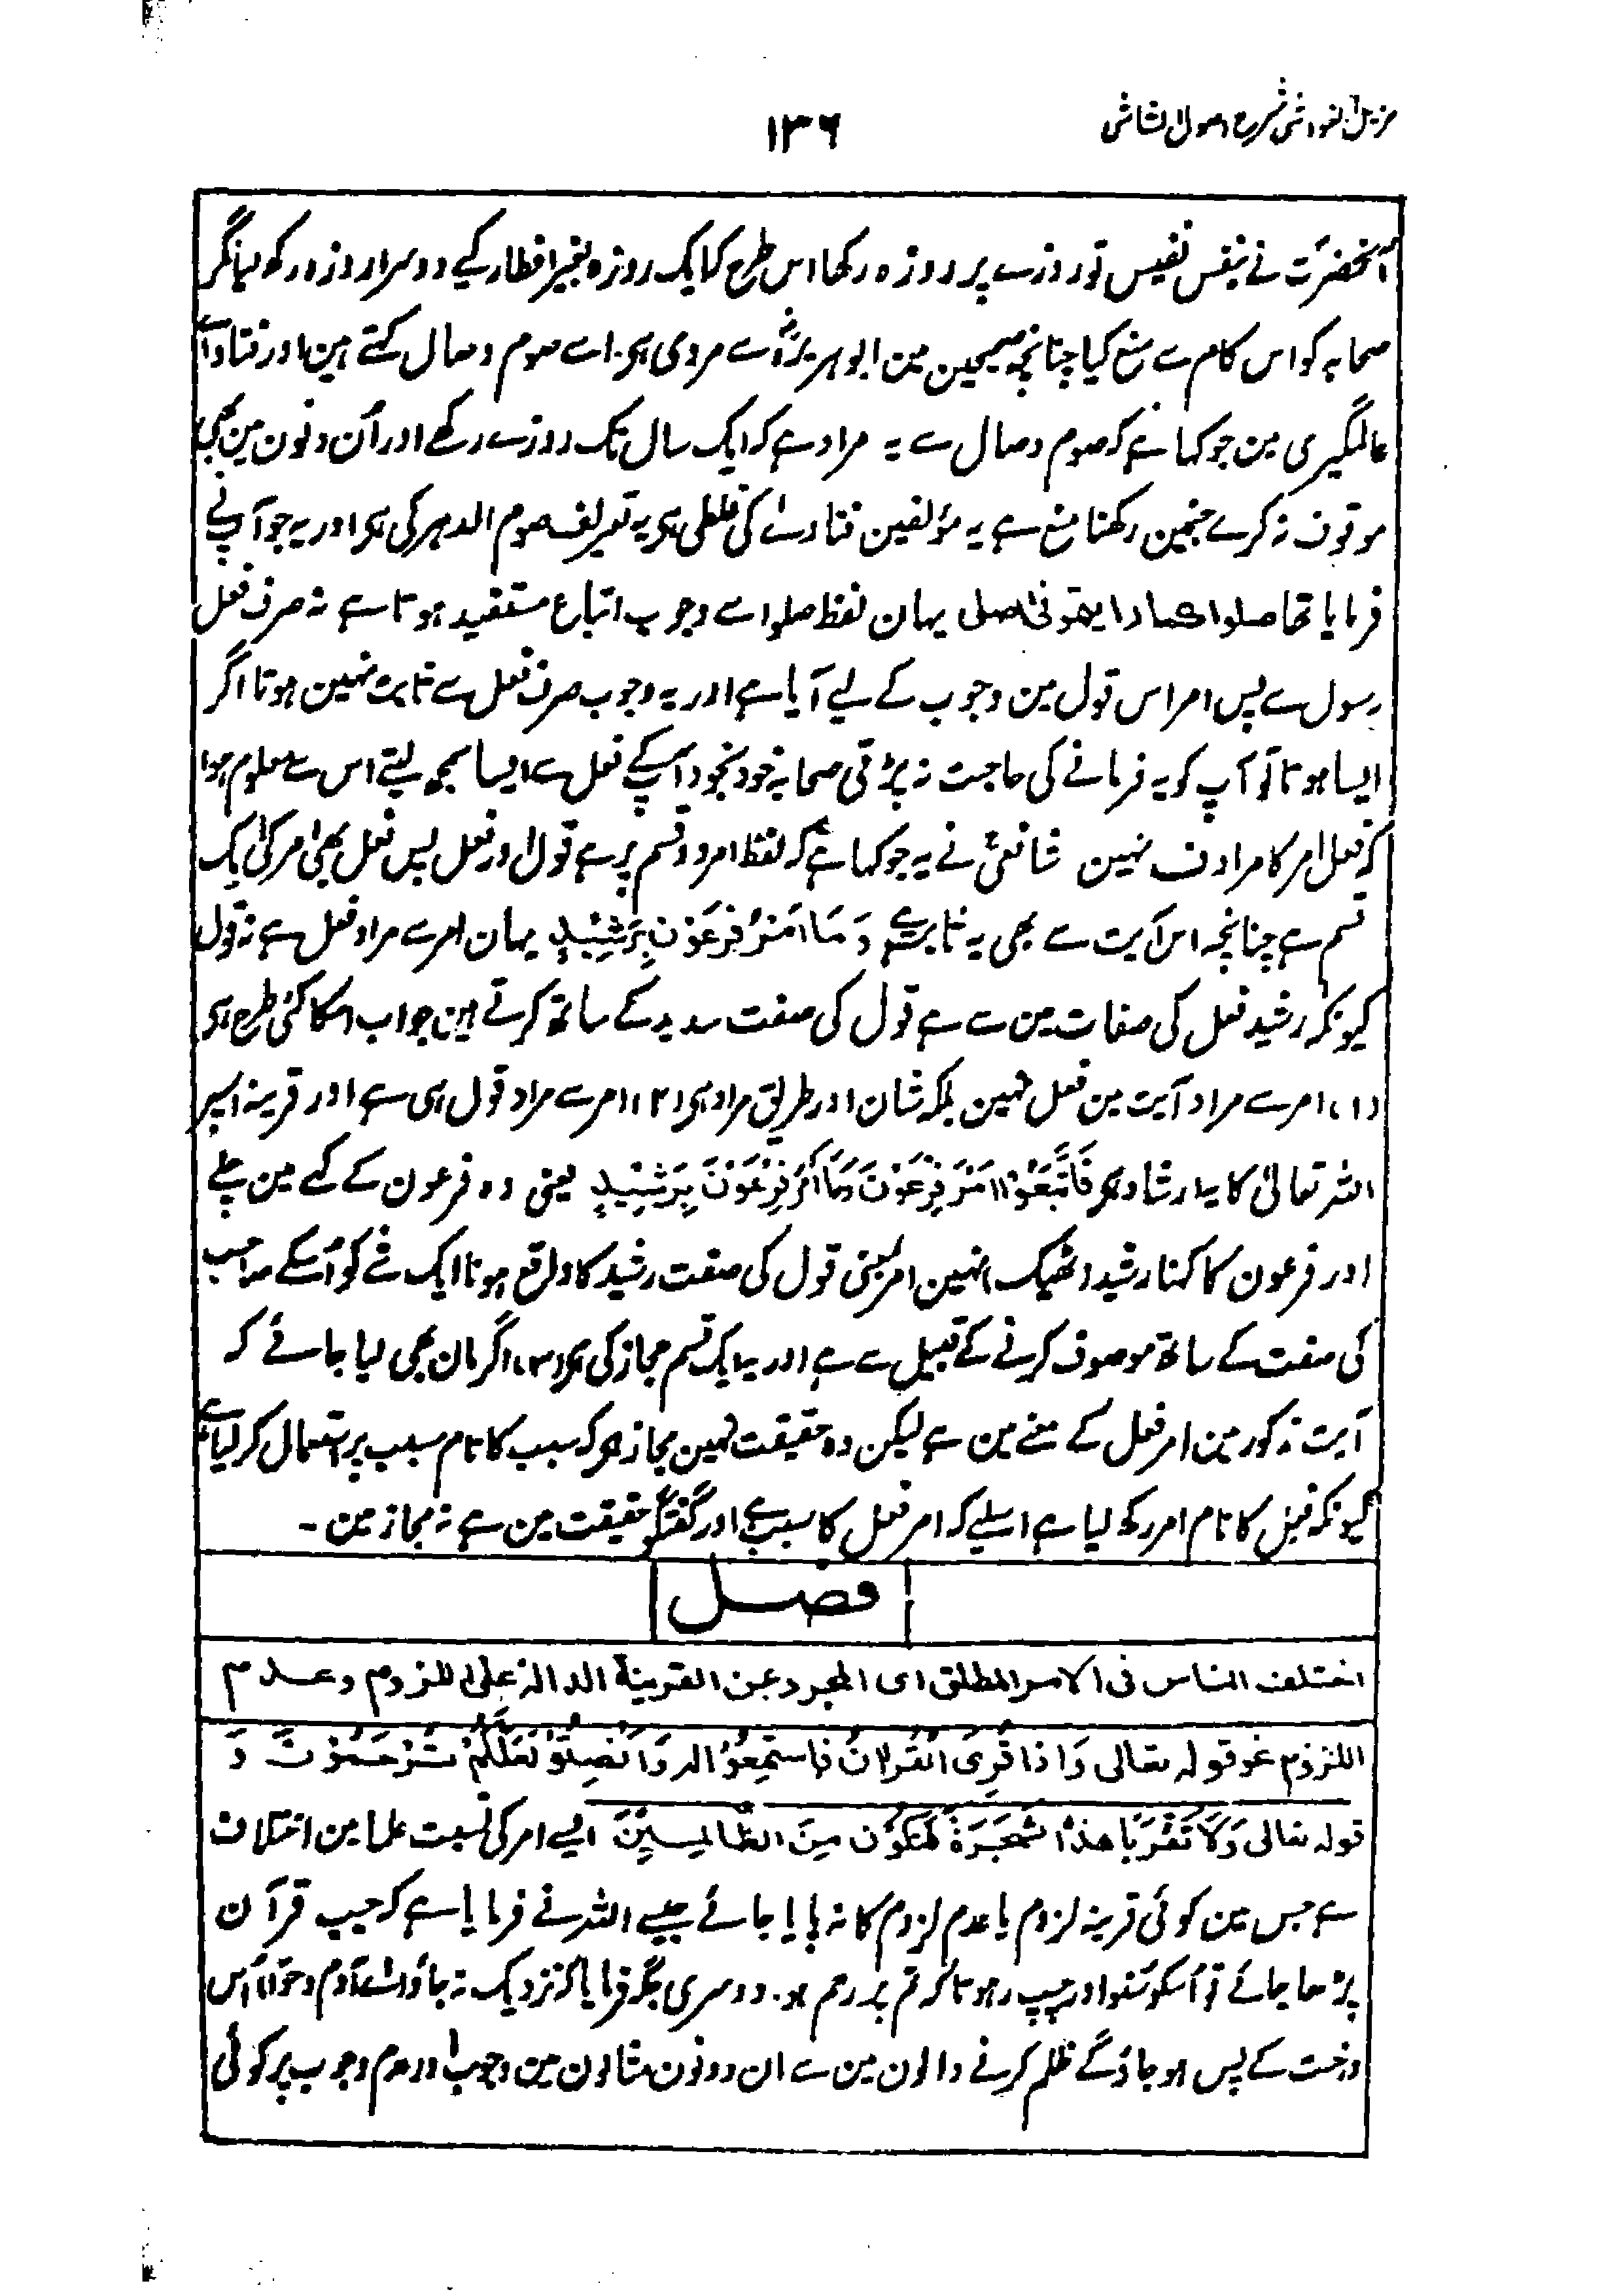 مزیل الغواشی شرح اصول الشاشی
۱۳۶
آنخضرت نے بنفس نفیس تو روزے پر روزہ رکھا اس طرح کہ ایک روزہ بغیر افطار کیے دوسرا روزہ رکھ لیا مگر
صحابہ کو اس کام سے منع کیا چنانچہ صحیحین مین ابوہریرہؓ سے مروی ہی۔ اسے صوم وصال کہتے ہین اور فتاواے
عالمگیری مین جو کہا ہے کہ صوم وصال سے یہ مراد ہے کہ ایک سال تک روزے رکھے اور اُن دنون مین بھی
موقوف نہ کرے جنمین رکھنا منع ہے یہ مؤلفین فتاوے کی غلطی ہی یہ تعریف صوم الدہر کی ہی اور یہ جو آپ نے
فرمایا تھا صلوا کما رایتمونی اصلی یہان لفظ صلوا سے وجوب اتباع مستفید ہوتا ہے نہ صرف فعل
رسول سے پس امر اس قول مین وجوب کے لیے آیا ہے اور یہ وجوب صرف فعل سے ثابت نہین ہوتا اگر
ایسا ہوتا تو آپ کو یہ فرمانے کی حاجت نہ پڑتی صحابہ خود بخود آپکے فعل سے ایسا سمجھ لیتے اس سے معلوم ہوا
کہ فعل امر کا مرادف نہین شافعیؒ نے یہ جو کہا ہے کہ لفظ امر دو قسم پر ہے قول اور فعل پس فعل بھی امر کی ایک
قسم ہے چنانچہ اس آیت سے بھی یہ ثابت ہے وَمَا اَمْرُ فِرْعَوْنَ بِرَشِیْدٍ یہان امر سے مراد فعل ہے نہ قول
کیونکہ رشید فعل کی صفات مین سے ہے قول کی صفت سدید کے ساتھ کرتے ہین جواب اسکا کئی طرح ہی
(۱) امر سے مراد آیت مین فعل نہین بلکہ شان اور طریق مراد ہی (۲) امر سے مراد قول ہی ہے اور قرینہ اسپر
اللہ تعالیٰ کا یہ ارشاد ہی فَاتَّبَعُوْا اَمْرَ فِرْعَوْنَ وَمَا اَمْرُ فِرْعَوْنَ بِرَشِیْدٍ یعنی وہ فرعون کے کہے مین چلے
اور فرعون کا کہنا رشید (ٹھیک) نہین امر بمعنی قول کی صفت رشید کا واقع ہونا ایک شے کو اُسکے صاحب
کی صفت کے ساتھ موصوف کرنے کے قبیل سے ہے اور یہ ایک قسم مجاز کی ہی (۳) اگر مان بھی لیا جائے کہ
آیت مذکور مین امر فعل کے معنے مین ہے لیکن وہ حقیقت نہین مجاز ہی کہ سبب کا نام مسبب پر استعمال کر لیا ہے
کیونکہ فعل کا نام امر رکھ لیا ہے اسلیے کہ امر فعل کا سبب ہے اور گفتگو حقیقت مین ہے نہ مجاز مین۔
فصل
اختلف الناس فی الامر المطلق ای المجرد عن القرینة الدالة علی اللزوم وعدم
اللزوم نحو قوله تعالی وَاِذَا قُرِئَ الْقُرْاٰنُ فَاسْتَمِعُوْا لَهٗ وَاَنْصِتُوْا لَعَلَّكُمْ تُرْحَمُوْنَ وَ
قوله تعالی وَلَا تَقْرَبَا هٰذِهِ الشَّجَرَةَ فَتَكُوْنَا مِنَ الظَّالِمِیْنَ ایسے امر کی نسبت علما مین اختلاف
ہے جس مین کوئی قرینہ لزوم یا عدم لزوم کا نہ پایا جائے جیسے اللہ نے فرمایا ہے کہ جب قرآن
پڑھا جائے تو اُسکو سُنو اور چپ رہو تاکہ تم پر رحم ہو۔ دوسری جگہ فرمایا کہ نزدیک نہ جاؤ اے آدم و حوّا اُس
درخت کے پس ہو جاؤ گے ظلم کرنے والون مین سے ان دونون مثالون مین وجوب اور عدم وجوب پر کوئی